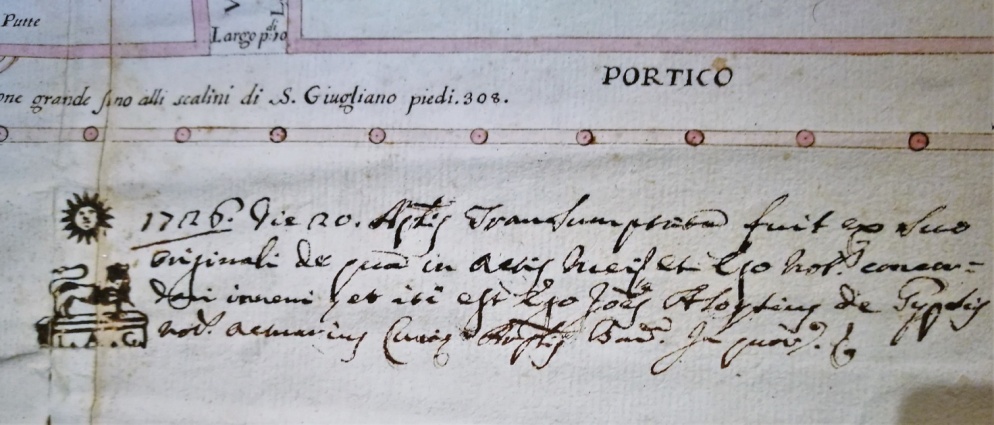 Putte
Largo p. di 10
one grande fino alli scalini di S. Giugliano piedi.308.
PORTICO
1726. Die 20. Transumptatum fuit ex suo
originali de quo in actis meis et Ego Not.s concor=
dari inveni et ita est Ego Joēs Aloysius de
not.s actuarius In quor.
L. A. G.